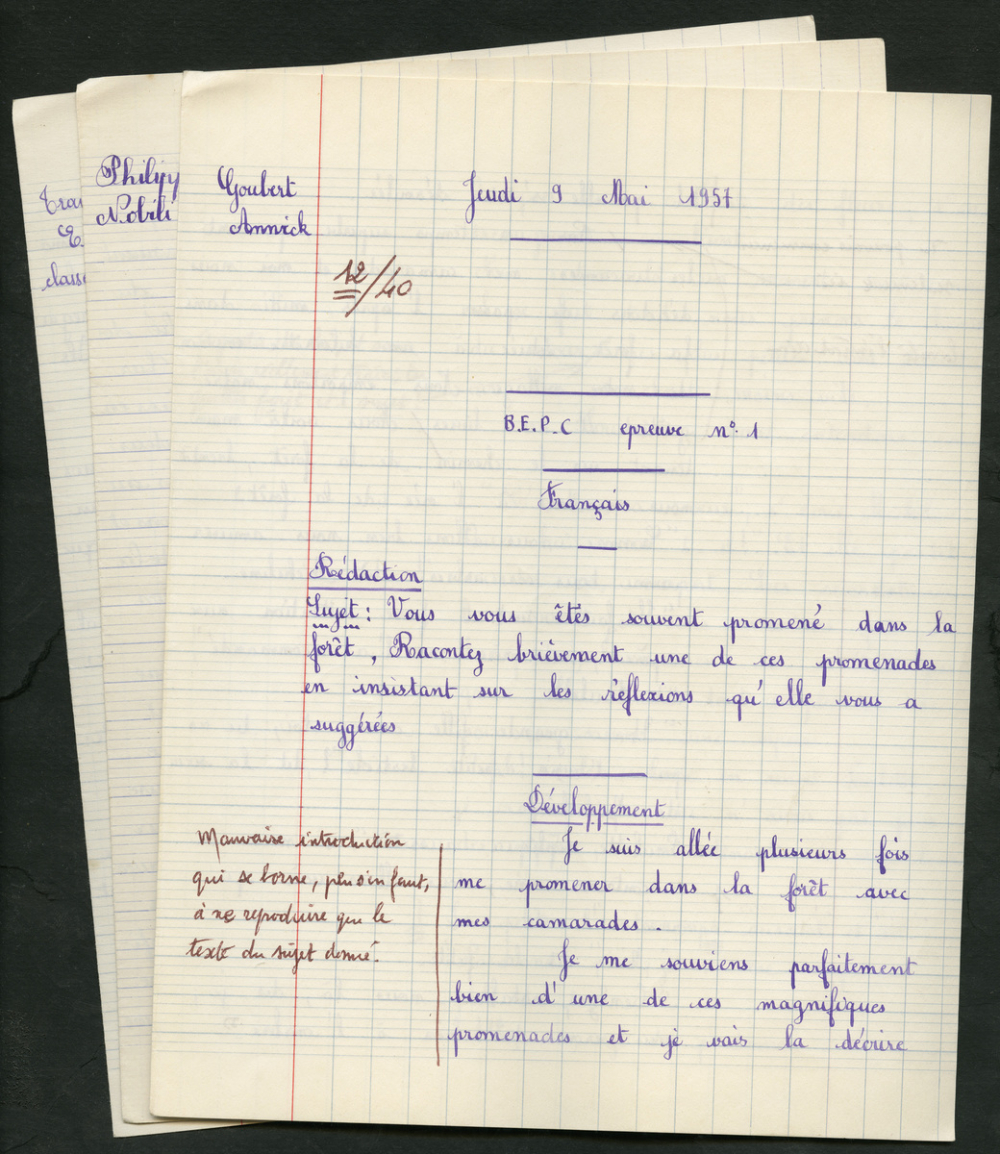 Philipp
Nobili
classe
Goubert
Annick
Jeudi 9 Mai 1957
12/40
B.E.P.C epreuve n° 1
Français
Rédaction
Sujet : Vous vous êtes souvent promené dans la
forêt, Racontez brièvement une de ces promenades
en insistant sur les réflexions qu'elle vous a
suggérées
Développement
Mauvaise introduction
qui se borne, peu s'en faut,
à ne reproduire que le
texte du sujet donné.
Je suis allée plusieurs fois
me promener dans la forêt avec
mes camarades.
Je me souviens parfaitement
bien d'une de ces magnifiques
promenades et je vais la décrire